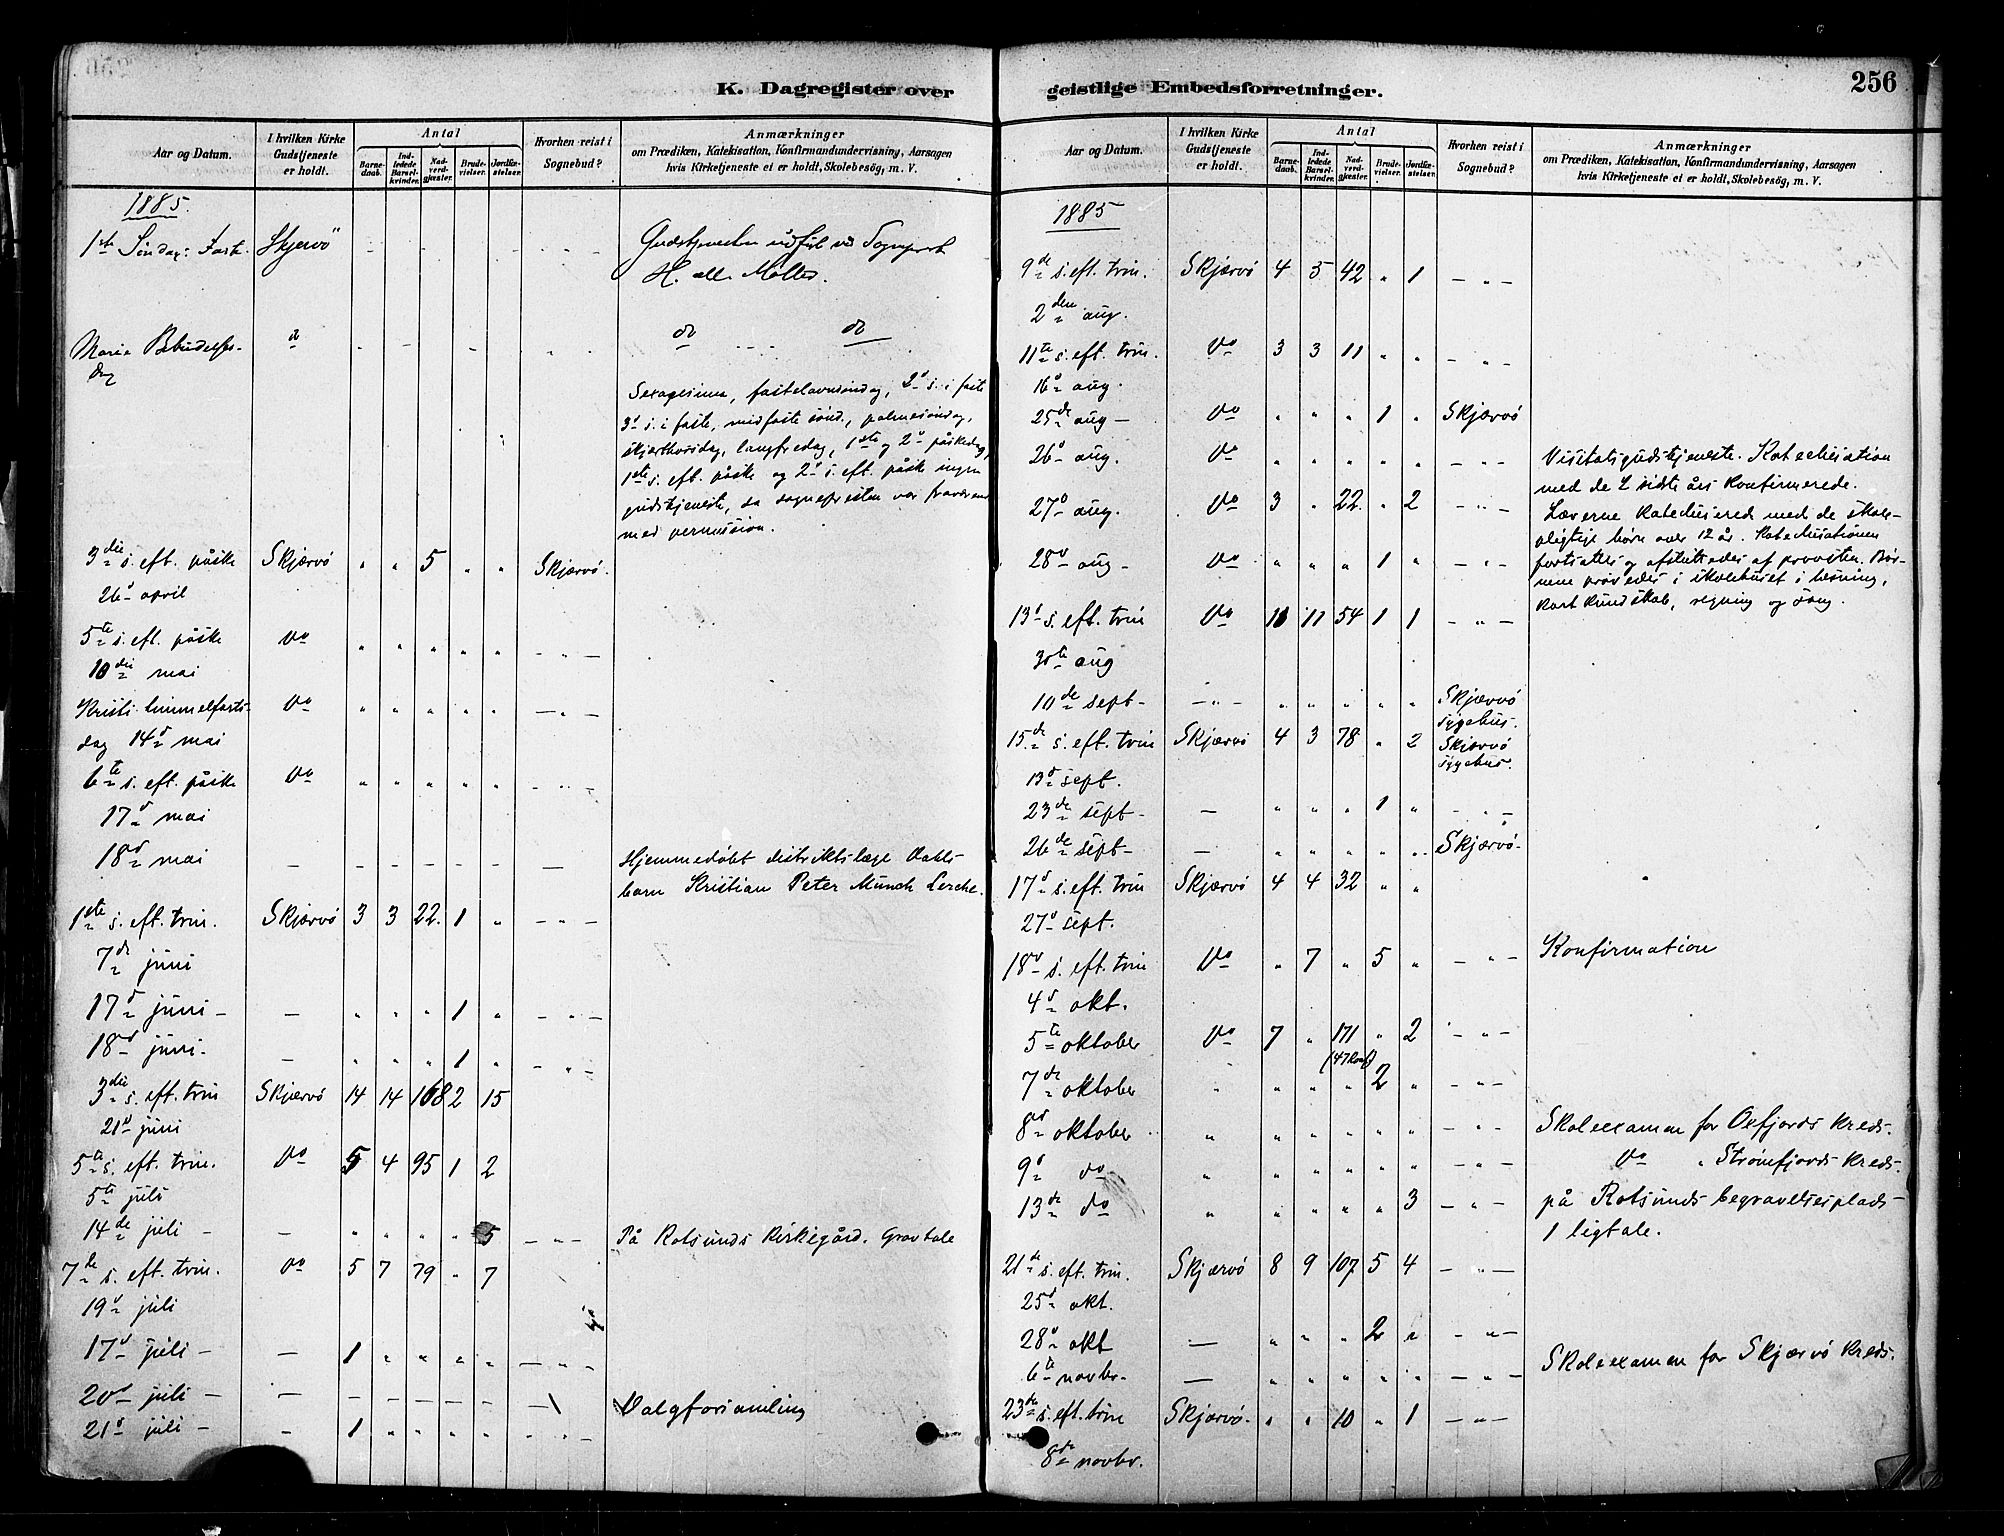 K. Dagregister over geistlige Embedsforretninger.
256
Aar og Datum.
I hvilken Kirke Gudstjeneste er holdt.
Antal
Barnedaab.
Indledede Barselkvinder.
Nadverdgjæster.
Brudevielser.
Jordfæstelser.
Hvorhen reist i Sognebud?
Anmærkninger
om Prædiken, Katekisation, Konfirmandundervisning, Aarsagen
hvis Kirketjeneste ei er holdt, Skolebesög, m. V.
1885.
1ste Søndag i Faste. Skjervö - - - - - - Gudstjenesten udfyldt
Maria Bebudelses- do - - - - - - do do
dag
Sexagesima, fastelavnsøndag, 2d s. i faste
3d s. i faste, midfaste sønd., palmesøndag,
skjærthorsdag, langfredag, 1ste og 2d påskedag,
1ste s. eft. påske og 2d s. eft. påske ingen
gudstjeneste, da sognepresten var fraværende
med permission.
3die s. eft. påske Skjærvö " " 5 " " Skjærvö.
26d april
5te s. eft. påske Do " " " " " — " —
10die mai
Kristi himmelfarts- Do " " " " " — " —
dag 14d mai
6te s. eft. påske Do " " " " " — " —
17d mai
18d mai — — — — — — — Hjemmedøbt distriktslæge
barn Kristian Peter Munch Lerche.
1ste s. eft. trin. Skjærvö 3 3 22. 1 " — " —
7de juni
17d juni — — " " " 1 " — " —
18d juni. — " " " 1 " — " —
3die s. eft. trin Skjærvö 14 14 168 2 15
21d juni
5te s. eft. trin. Do 5 4 95 1 2
5te juli
14de juli — — " " " " 5 — " — På Rotsunds Kirkegård. Gravtale
7de s. eft. trin. Do 5 7 79 " 7
19d juli
17d juli — — 1 " " " " — " —
20d juli — — — — — — — — Valgforsamling
21d juli — — 1 " " " " — " —
Aar og Datum.
I hvilken Kirke Gudstjeneste er holdt.
Antal
Barnedaab.
Indledede Barselkvinder.
Nadverdgjæster.
Brudevielser.
Jordfæstelser.
Hvorhen reist i Sognebud?
Anmærkninger
om Prædiken, Katekisation, Konfirmandundervisning, Aarsagen
hvis Kirketjeneste ei er holdt, Skolebesög, m. V.
1885
9de s. eft. trin. Skjærvö 4 5 42 " 1 — " —
2den aug.
11te s. eft. trin. Do 3 3 11 " " — " —
16d aug.
25de aug — Do " " " 1 " Skjærvö
26d aug. Do " " " " " — " — Visitatsgudstjeneste. Katechisation
med de 2 sidste års Konfirmerede.
27d aug. Do 3 " 22 " 2 — " — Lærerne Katechiserede med de skole-
pligtige børn over 12 år. Katechisationen
28d aug — Do " " " 1 " — " — fortsattes og afsluttedes af provsten. Bør-
nene prøvedes i skolehuset i læsning,
Kort Kundskab, regning og sang.
13d s. eft. trin Do 11 11 54 1 1 — " —
30te aug
10de sept — — " — " " " " " Skjærvö
sygehus.
15de s. eft. trin Skjærvö 4 3 78 " 2 Skjærvö
sygehus.
13d sept.
23de sept — — " " " 1 " — " —
26de sept — — " " " " " Skjærvö.
17d s. eft. trin Skjærvö 4 4 32 " "
27d sept.
18d s. eft. trin Do " 7 " 5 " — " — Konfirmation
4d okt.
5te oktober Do 7 " 171 " 2 — " —
(47 Konf)
7de oktober " " " " 2 " — " —
8d oktober " " " " " " — " — Skoleexamen for Oxfjords Kreds.
9d do " " " " " " — " — Do " Strømfjords Kreds.
13de do " " " " " 3 — " — på Rotsunds begravelsesplads —
1 ligtale.
21de s. eft. trin. Skjærvö 8 9 107 5 4 — " —
25d okt.
28d okt — " " " 2 " — " —
6te novbr. — " " " " " — " — Skoleexamen for Skjærvö Kreds.
23de s. eft. trin Skjærvö. " " 10 " 1 — " —
8de novbr.